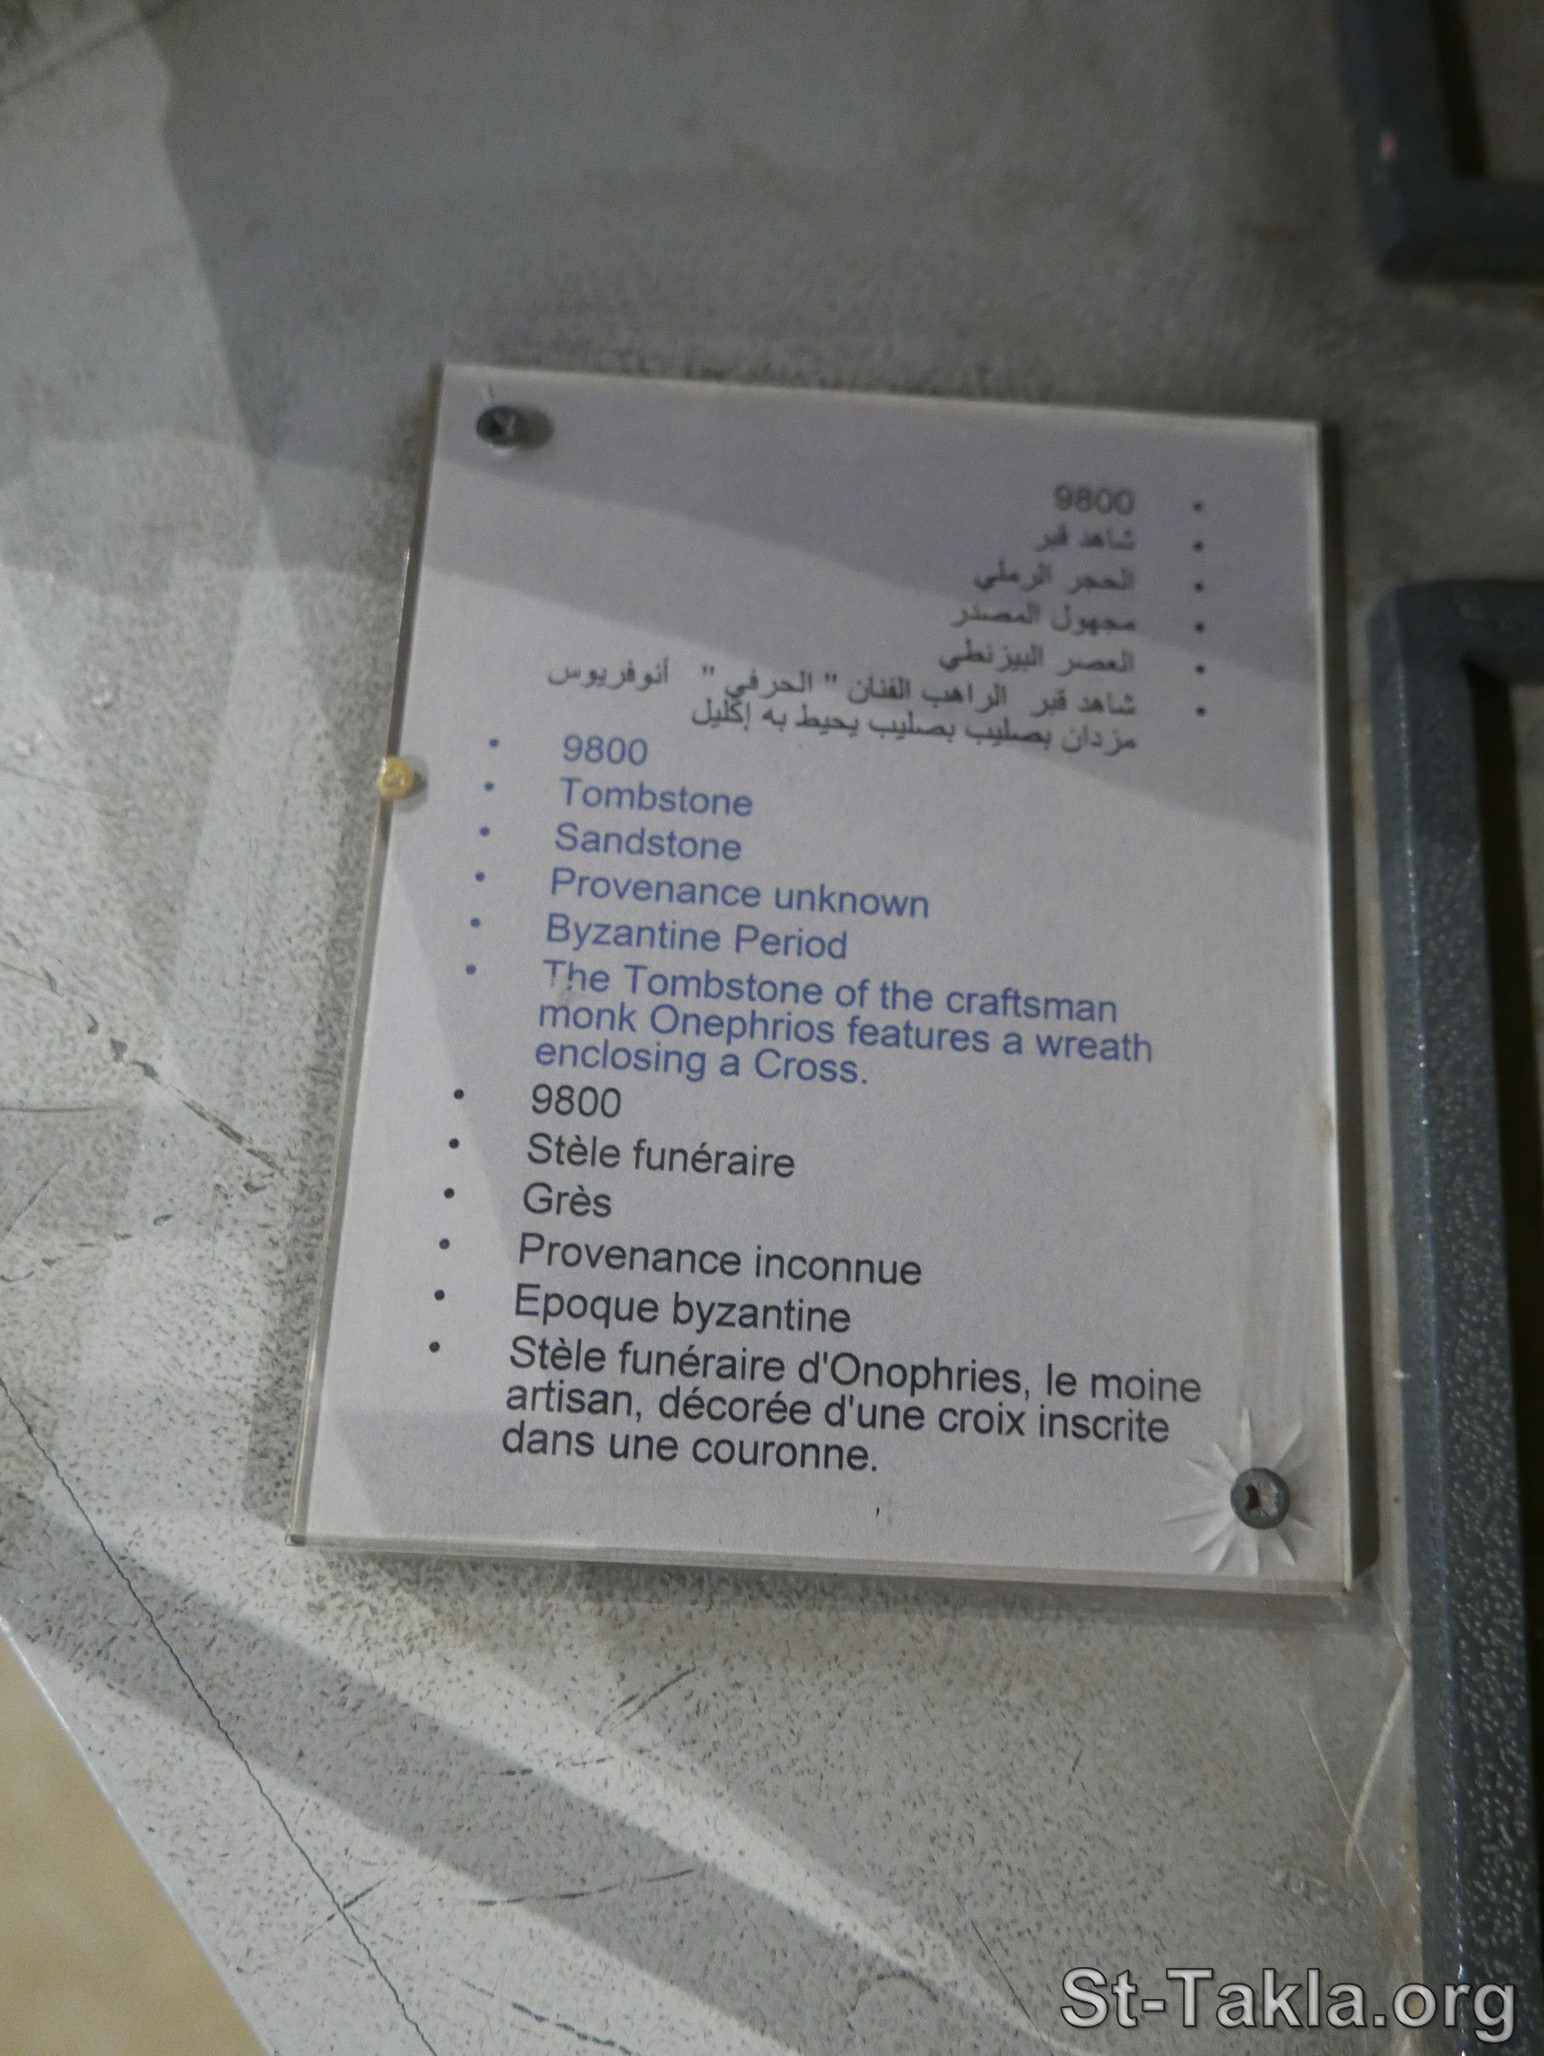 9800
شاهد قبر
الحجر الرملي
مجهول المصدر
العصر البيزنطي
شاهد قبر الراهب الفنان " الحرفي " أنوفريوس
مزدان بصليب بصليب يحيط به إكليل
9800
Tombstone
Sandstone
Provenance unknown
Byzantine Period
The Tombstone of the craftsman
monk Onephrios features a wreath
enclosing a Cross.
9800
Stèle funéraire
Grès
Provenance inconnue
Epoque byzantine
Stèle funéraire d'Onophries, le moine
artisan, décorée d'une croix inscrite
dans une couronne.
St-Takla.org